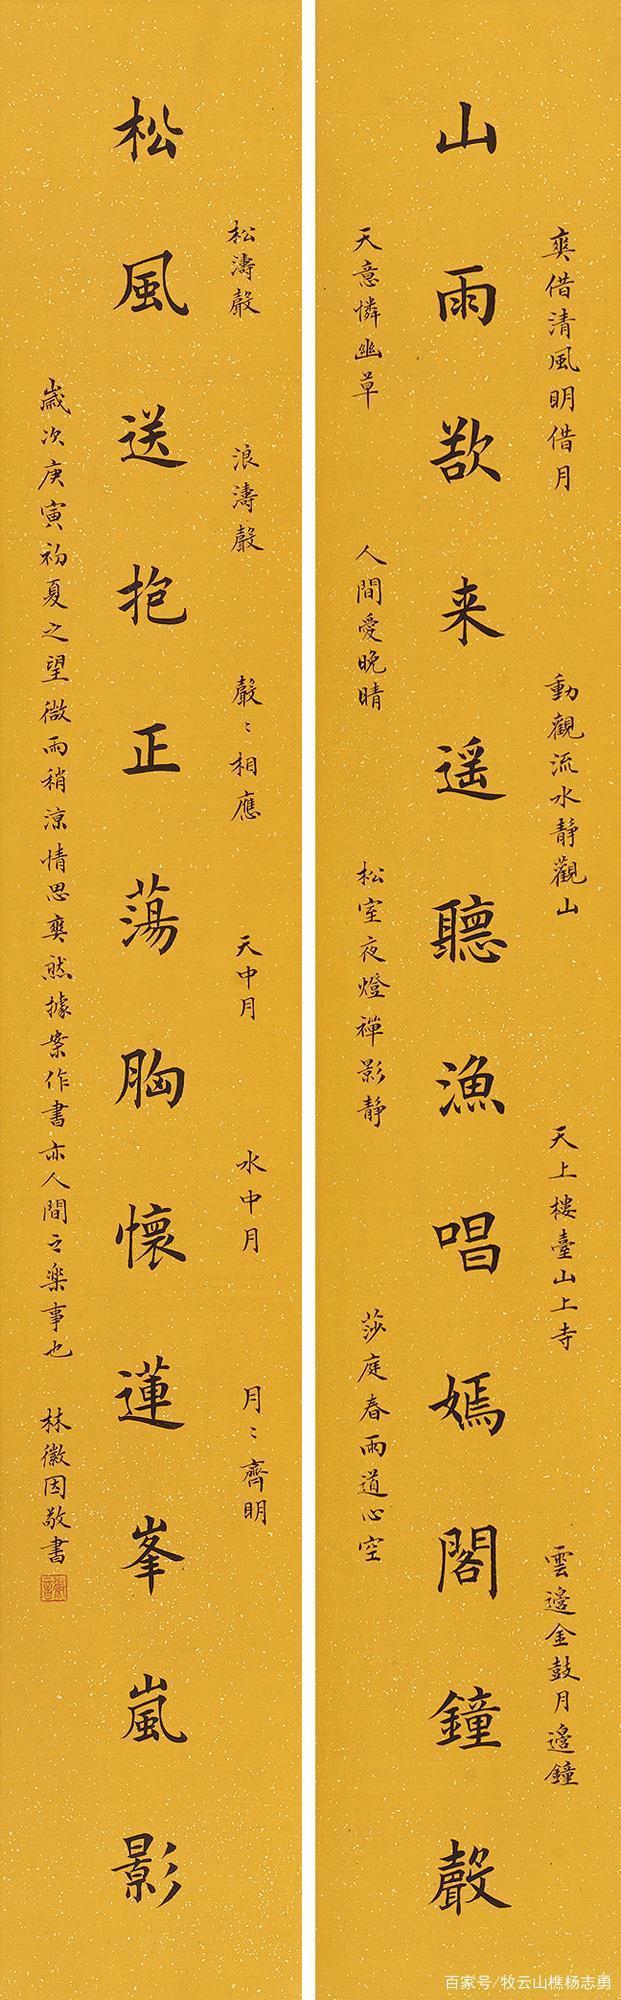 爽借清風明借月　動觀流水靜觀山　天上樓臺山上寺　雲邊金鼓月邊鐘
山雨欲来遥聽漁唱嫣閣鐘聲
天意憐幽草　人間愛晚晴　松室夜燈禪影靜　莎庭春雨道心空
松濤聲　浪濤聲　聲〻相應　天中月　水中月　月〻齊明
松風送抱正蕩胸懷蓮峯嵐影
歲次庚寅初夏之望微雨稍涼情思爽然據案作書亦人間之樂事也　林徽因敬書
百家号/牧云山樵杨志勇